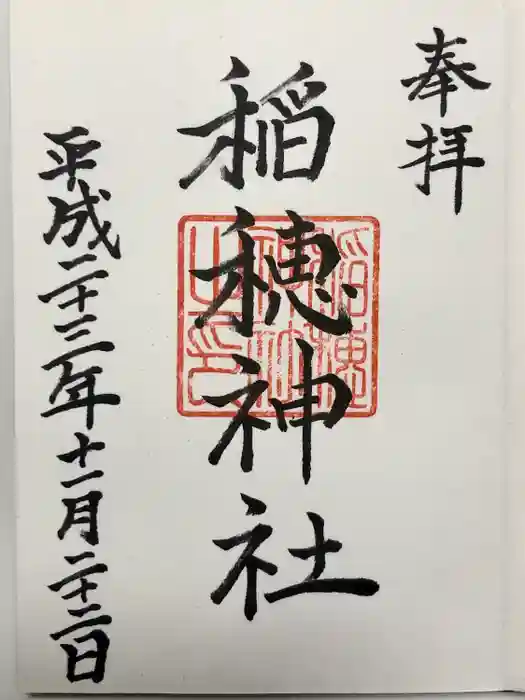 奉拝
稲穂神社
稲穂
神社
之印
平成二十三年十一月二十二日